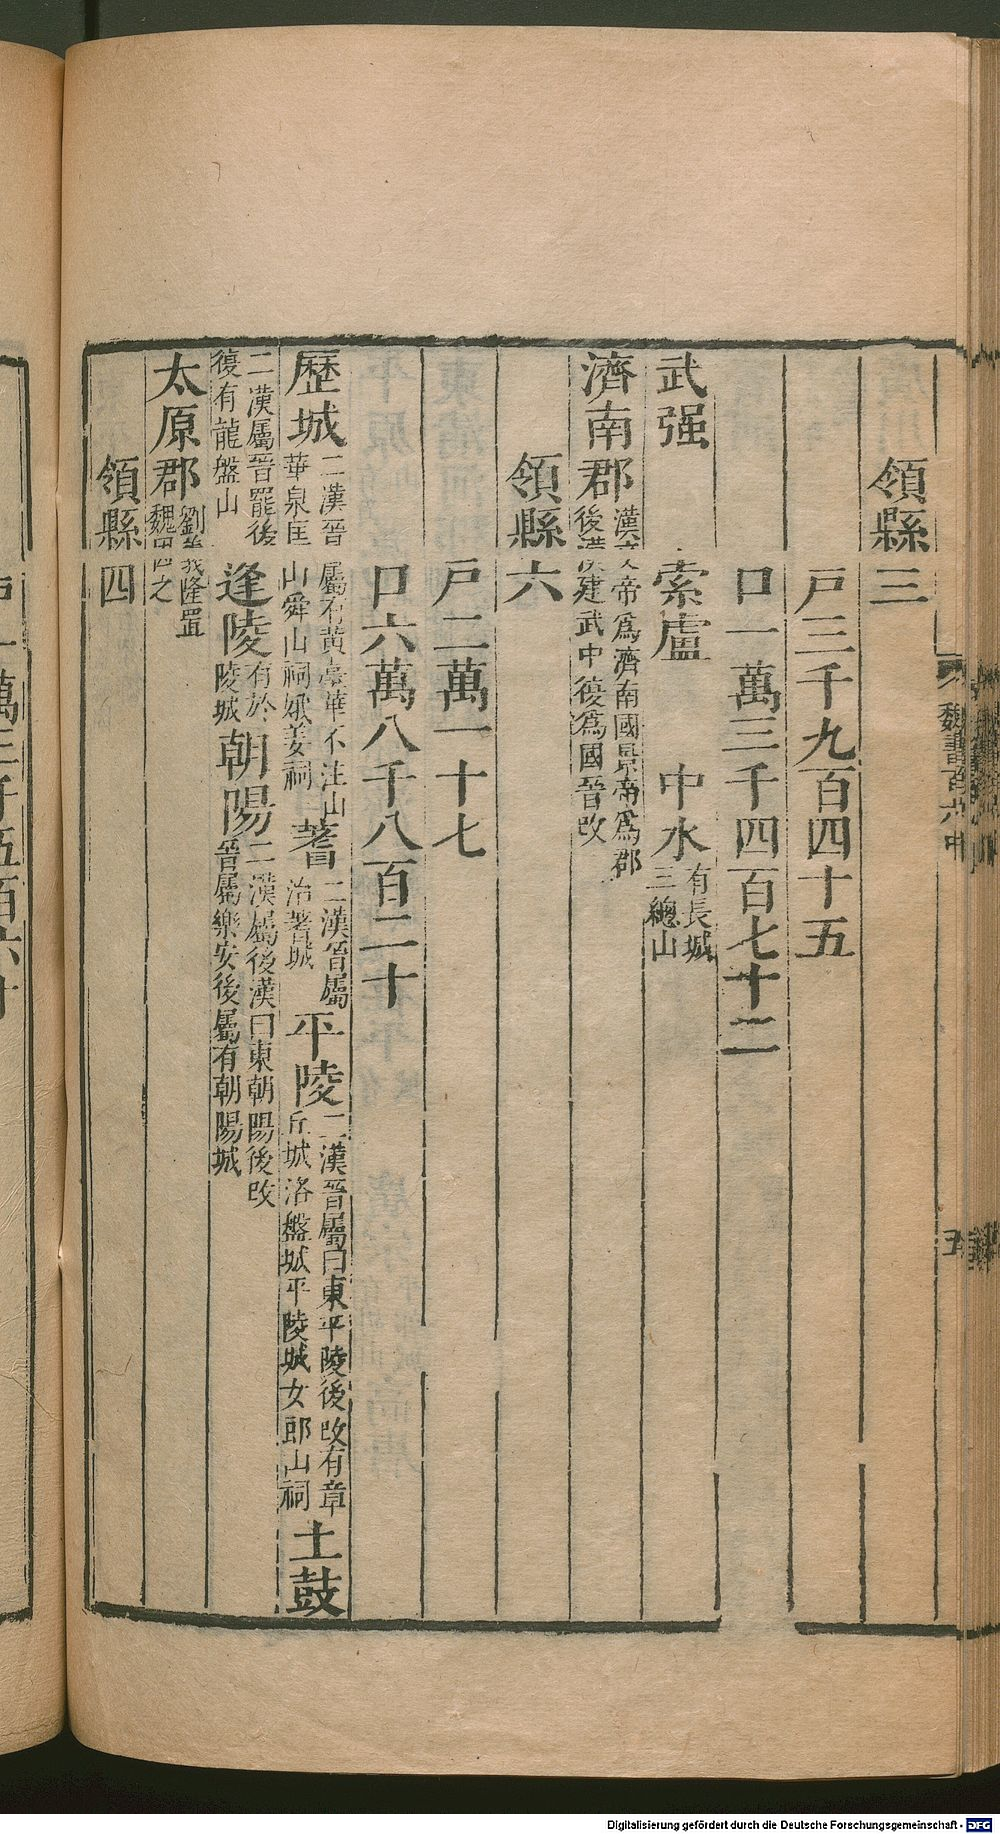 魏書百六中
五
領縣三
戸三千九百四十五
口一萬三千四百七十二
武强 索盧 中水有長城三總山
濟南郡漢文帝爲濟南國景帝爲郡後漢建武中復爲國晉改
領縣六
戸二萬一十七
口六萬八千八百二十
歷城二漢晉屬有黃臺華不注山華泉匡山舜山祠娥姜祠 著二漢晉屬治著城 平陵二漢晉屬曰東平陵後改有章丘城洛盤城平陵城女郎山祠 土鼓
二漢屬晉罷後復有龍盤山 逢陵有於陵城 朝陽二漢屬後漢曰東朝陽後改晉屬樂安後屬有朝陽城
太原郡劉義隆置魏因之
領縣四
戸一萬三千五百六十
Digitalisierung gefördert durch die Deutsche Forschungsgemeinschaft - DFG